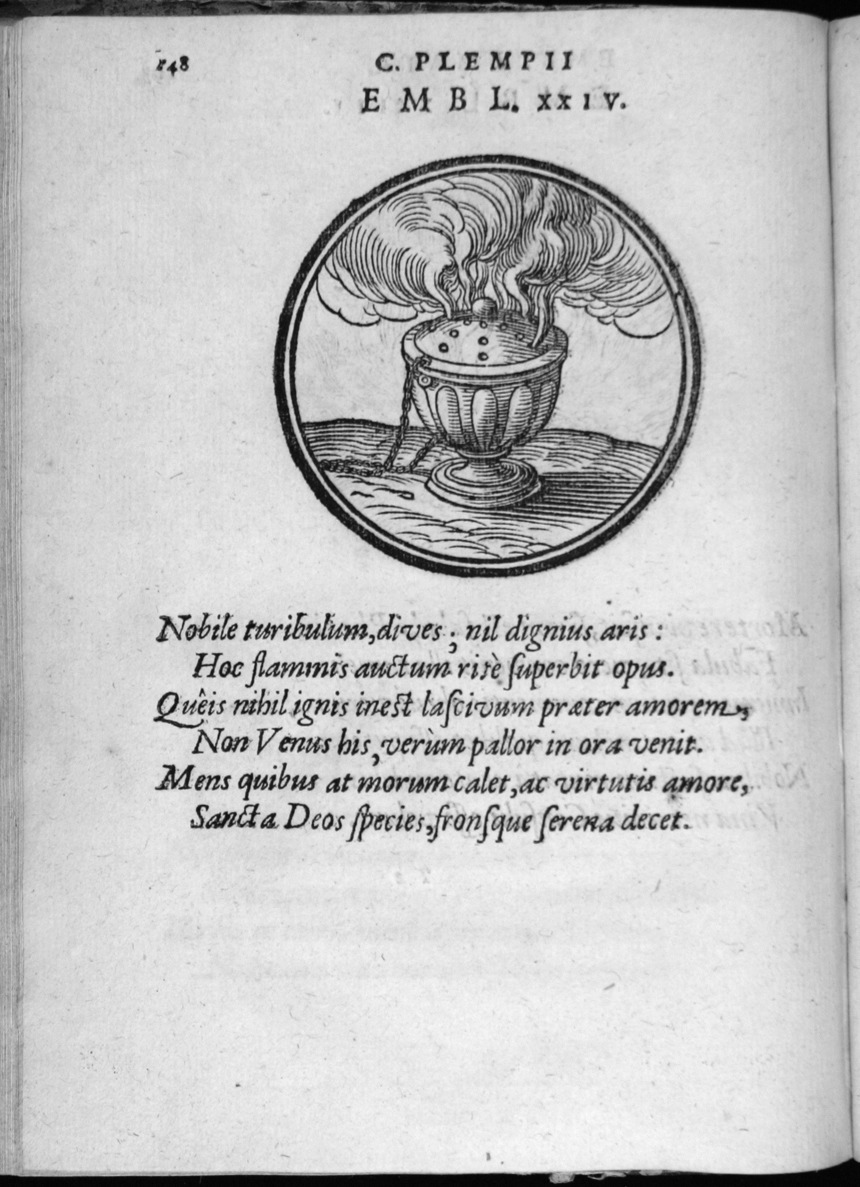 148
C. PLEMPII
EMBL. XXIV.
Nobile turibulum, dives; nil dignius aris:
Hoc flammis auctum ritè ſuperbit opus.
Quêis nihil ignis ineſt laſcivum præter amorem,
Non Venus his, verùm pallor in ora venit.
Mens quibus at morum calet, ac virtutis amore,
Sancta Deos ſpecies, fronſque ſerena decet.